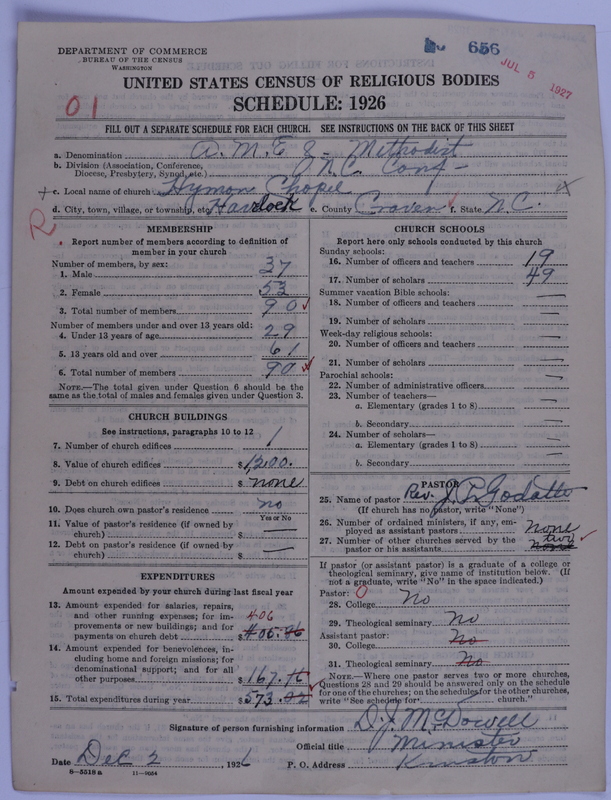 656
JUL 5 1927
DEPARTMENT OF COMMERCE
BUREAU OF THE CENSUS
WASHINGTON
UNITED STATES CENSUS OF RELIGIOUS BODIES
SCHEDULE: 1926
01
FILL OUT A SEPARATE SCHEDULE FOR EACH CHURCH. SEE INSTRUCTIONS ON THE BACK OF THIS SHEET
a. Denomination A. M. E Z - Methodist
b. Division (Association, Conference, Diocese, Presbytery, Synod, etc.) N.C. Conf -
c. Local name of church Hymon Chapel
d. City, town, village, or township, etc. Havelock e. County Craven f. State N.C.
R
MEMBERSHIP
Report number of members according to definition of member in your church
Number of members, by sex:
1. Male 37
2. Female 53
3. Total number of members 90
Number of members under and over 13 years old:
4. Under 13 years of age 29
5. 13 years old and over 61
6. Total number of members 90
NOTE.—The total given under Question 6 should be the same as the total of males and females given under Question 3.
CHURCH BUILDINGS
See instructions, paragraphs 10 to 12
7. Number of church edifices 1
8. Value of church edifices $1200.
9. Debt on church edifices $ none
10. Does church own pastor's residence? no
Yes or No
11. Value of pastor's residence (if owned by church) $ —
12. Debt on pastor's residence (if owned by church) $ —
EXPENDITURES
Amount expended by your church during last fiscal year
13. Amount expended for salaries, repairs, and other running expenses; for improvements or new buildings; and for payments on church debt 406 $ 405.96
14. Amount expended for benevolences, including home and foreign missions; for denominational support; and for all other purposes $ 167.16
15. Total expenditures during year $ 573.02
CHURCH SCHOOLS
Report here only schools conducted by this church
Sunday schools:
16. Number of officers and teachers 19
17. Number of scholars 49
Summer vacation Bible schools:
18. Number of officers and teachers —
19. Number of scholars —
Week-day religious schools:
20. Number of officers and teachers —
21. Number of scholars —
Parochial schools:
22. Number of administrative officers —
23. Number of teachers—
a. Elementary (grades 1 to 8) —
b. Secondary —
24. Number of scholars—
a. Elementary (grades 1 to 8) —
b. Secondary —
PASTOR
25. Name of pastor Rev. J.
(If church has no pastor, write "None")
26. Number of ordained ministers, if any, employed as assistant pastors none
27. Number of other churches served by the pastor or his assistants two none
If pastor (or assistant pastor) is a graduate of a college or theological seminary, give name of institution below. (If not a graduate, write "No" in the space indicated.)
Pastor: 0
28. College No
29. Theological seminary No
Assistant pastor:
30. College No
31. Theological seminary No
NOTE.—Where one pastor serves two or more churches, Questions 28 and 29 should be answered only on the schedule for one of the churches; on the schedules for the other churches, write "See schedule for church."
Signature of person furnishing information D. J. McDowell
Official title Minister
Date Dec 2, 1926 P. O. Address Kinston
8—5518 a 11—9054